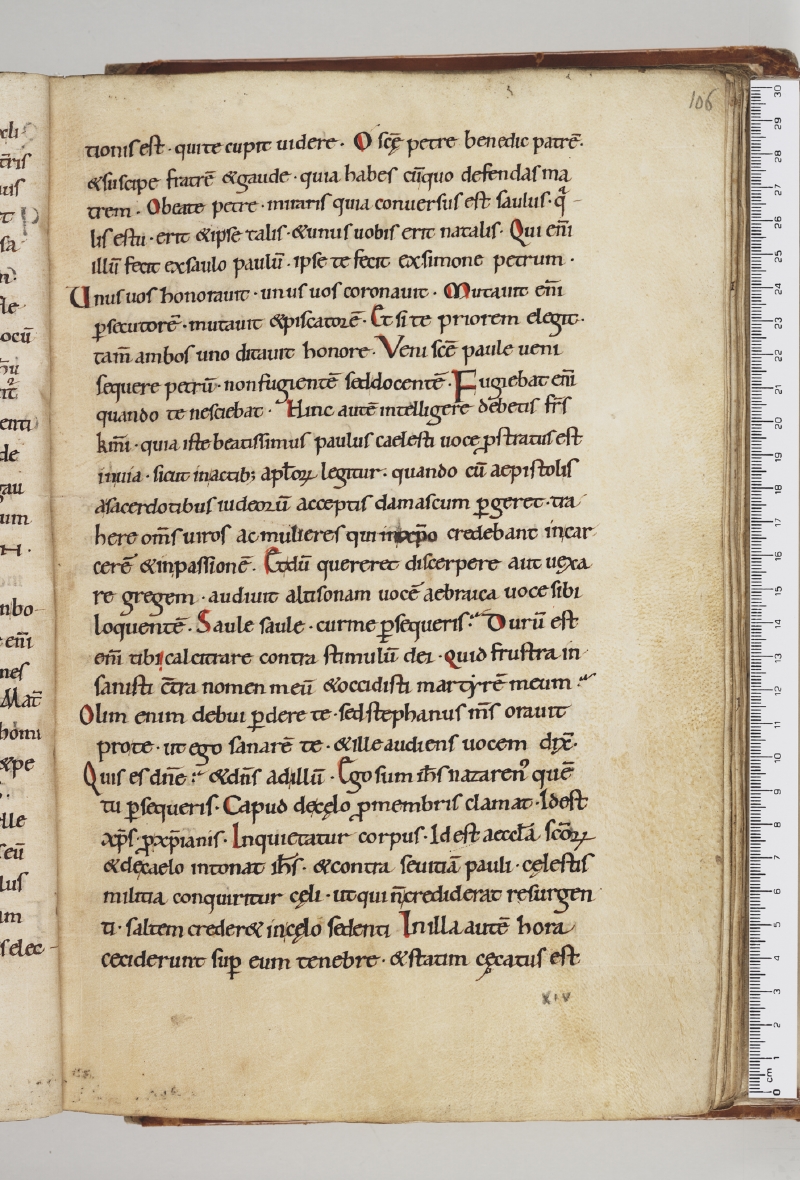 106
tionis est · qui te cupit uidere · O sc̄ę petre benedic patrē ·
& suscipe fratrē & gaude · quia habes cū quo defendas ma
trem · O beate petre · miraris quia conuersus est saulus · q̄
lis es tu · erit & ipse talis · & unus uobis erit natalis · Qui eni͞
illū fecit ex saulo paulū · ipse te fecit ex simone petrum ·
Unus uos honorauit · unus uos coronauit · Mutauit eni͞
ꝑsecutorē · mutauit & piscatorē · Et si te priorem elegit ·
tam̄ ambos uno ditauit honore · Veni sc̄e paule ueni
sequere petrū · non fugientē sed docentē · Fugiebat eni͞
quando te nesciebat · Hinc autē intelligere debetis fr̄s
km̄i · quia iste beatissimus paulus caelesti uoce ꝓstratus est
in uia · sicut in actib; apl̄oꝝ legitur · quando cū aepistolis
a sacerdotibus iudeorū acceptis damascum ꝑgeret · tra
here om̄s uiros ac mulieres qui in xp̄o credebant in car
cerē & in passionē · Et dū quereret discerpere aut uexa
re gregem · audiuit altisonam uocē aebraica uoce sibi
loquentē · Saule saule · cur me ꝑsequeris · Durū est
eni͞ tibi calcitrare contra stimulū dei · quid frustra in
sanisti c̄tra nomen meū & occidisti martyrē meum ·
Olim enim debui ꝑdere te · sed stephanus m̄s orauit
pro te · ut ego sanarē te · & ille audiens uocem dix̄ ·
Quis es dn̄e · & dn̄s ad illū · Ego sum ih̄s nazarenꝰ quē
tu ꝑsequeris · Capud de cęlo ꝓ membris clamat · Id est
xp̄s · ꝓ xp̄ianis · Inquietatur corpus · Id est aeccl̄a sc̄oꝝ
& de caelo intonat ih̄s · & contra seuitiā pauli · cęlestis
militia conquiritur cęli · ut qui n̄ crediderat resurgen
ti · saltem creder& in cęlo sedenti In illa autē hora
ceciderunt suꝑ eum tenebre · & statim cęcatus est
XIV